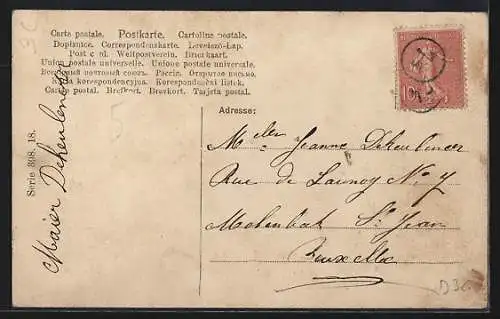 Carte postale. Postkarte. Cartolina postale.
Dopisnice. Correspondenskarte. Levelező-Lap.
Post c rd. Weltpostverein. Brevkaart.
Union postale universelle. Unione postale universale.
Всемірный почтовый союз. Россія. Открытое письмо.
Karta korespondencyjna. Korespondenční lístek.
Cartão postal. Brefkort. Brevkort. Tarjeta postal.
Adresse:
Serie 308. 18.
Maier Dekeuleneer
Melle Jeanne Dekeuleneer
Rue de Launoy No 7
Molenbeek St Jean
Bruxelles
5
D36